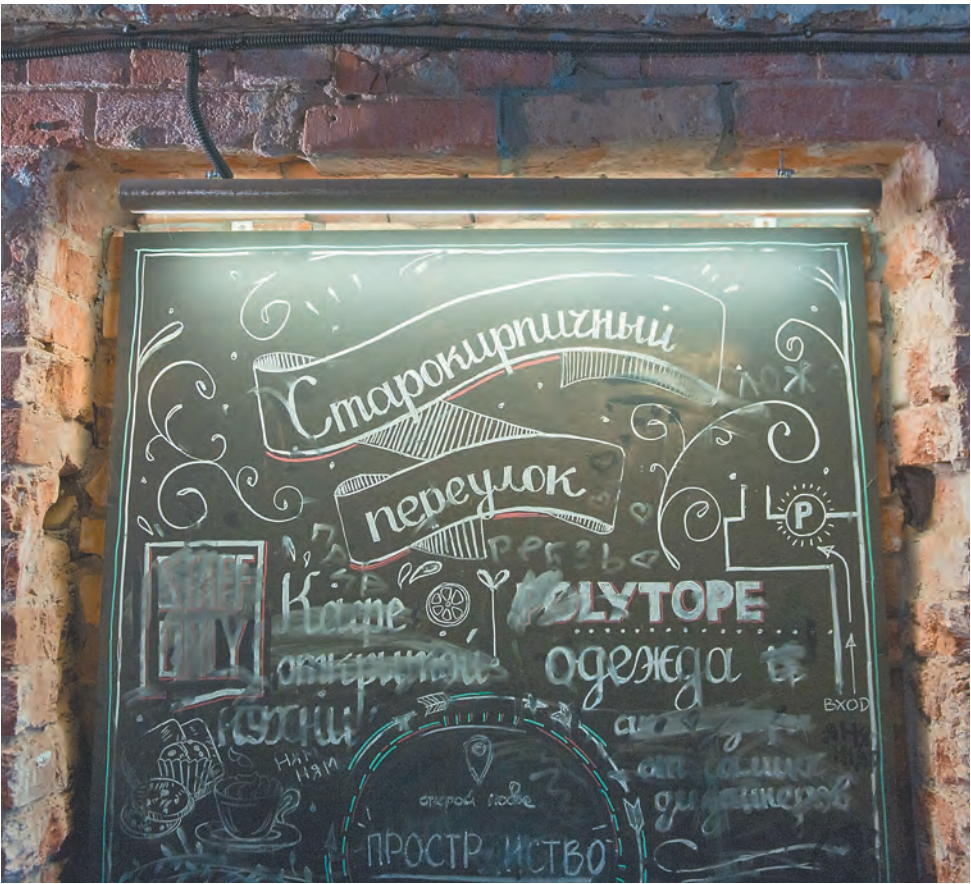 Старокирпичный
переулок
STAFF
ONLY
Кафе
открытой
кухни
НЯМ
НЯМ
POLYTOPE
одежда и
от самих
дизайнеров
P
ВХОД
открой новое
ПРОСТРАНСТВО